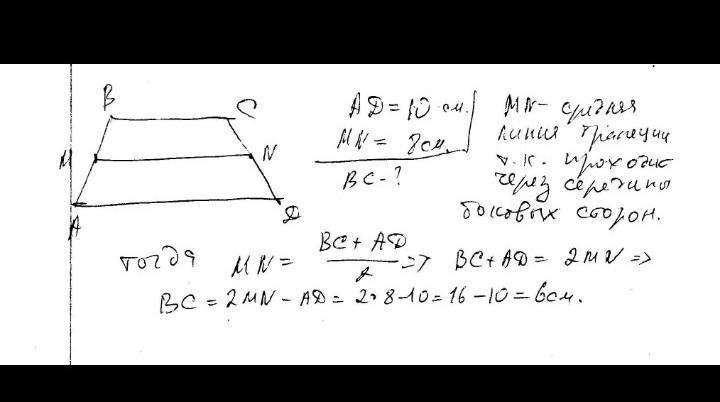 B
C
M
N
A
D
AD = 10 см.
MN = 8 см.
BC - ?
MN - средняя
линия трапеции
т.к. проходит
через середины
боковых сторон.
тогда MN = (BC + AD) / 2 => BC + AD = 2MN =>
BC = 2MN - AD = 2·8-10 = 16-10 = 6см.